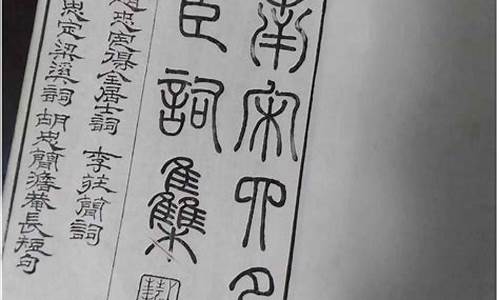 南宋四名
臣詞集
趙忠定得全居士詞 李莊簡詞
忠定梁溪詞 胡忠簡澹菴長短句